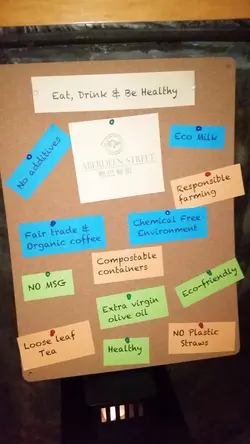 Eat, Drink & Be Healthy
No additives
ABERDEEN STREET
Eco Milk
Responsible
farming
Fair trade &
Organic coffee
Chemical Free
Environment
Compostable
containers
NO MSG
Eco-friendly
Extra virgin
olive oil
Loose leaf
Tea
Healthy
NO Plastic
Straws